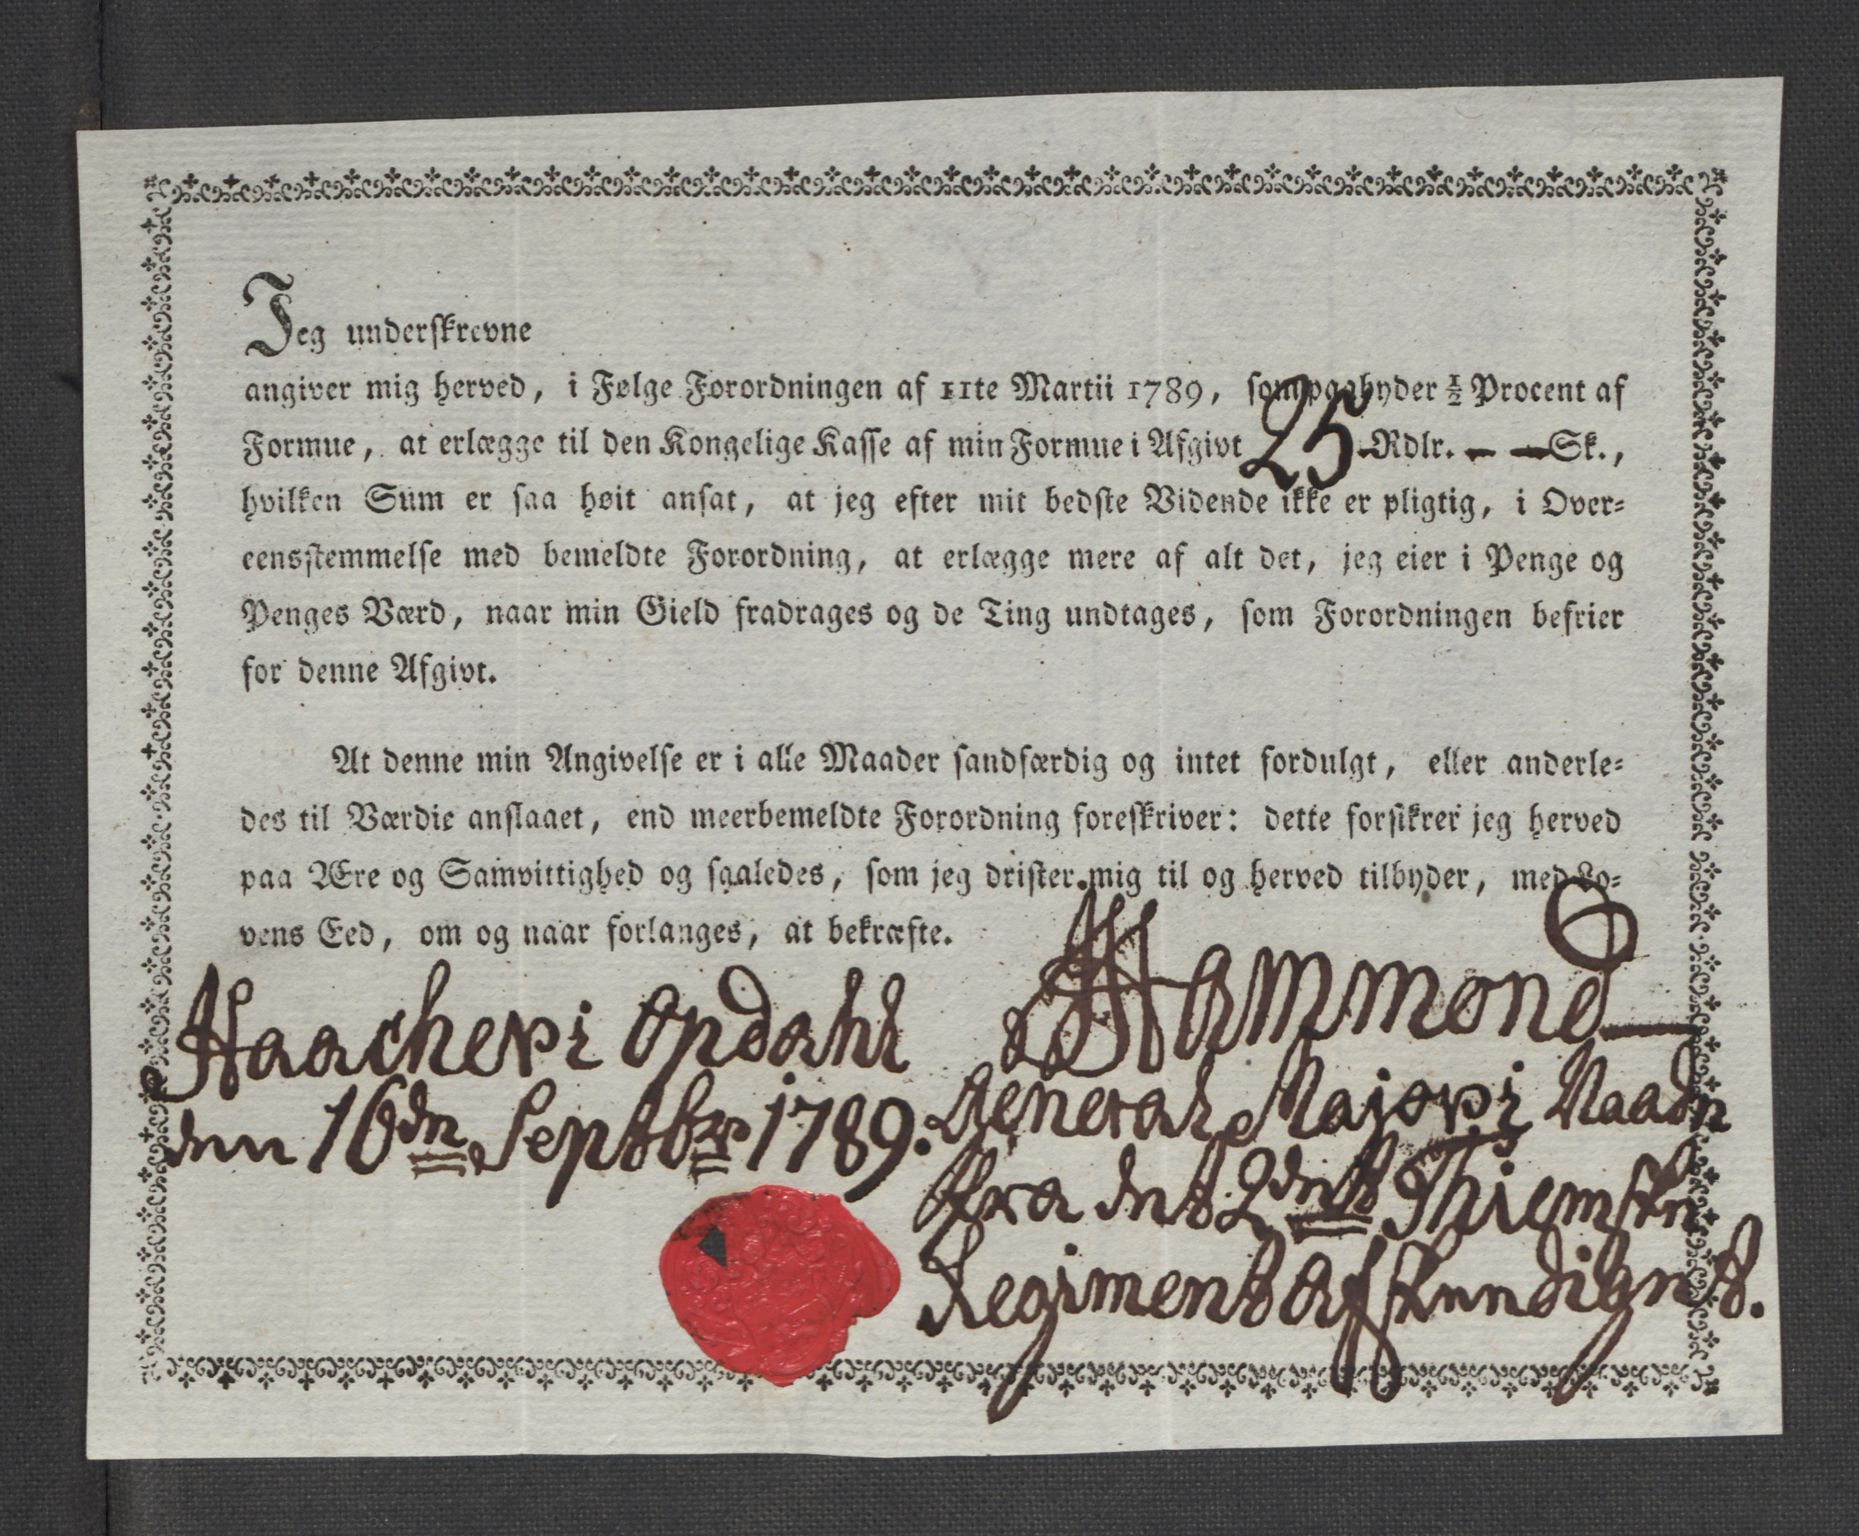 Jeg underskrevne
angiver mig herved, i Følge Forordningen af 11te Martii 1789, som paabyder ½ Procent af
Formue, at erlægge til den Kongelige Kasse af min Formue i Afgivt 25 Rdlr. — — Sk.,
hvilken Sum er saa høit ansat, at jeg efter mit bedste Vidende ikke er pligtig, i Over-
eensstemmelse med bemeldte Forordning, at erlægge mere af alt det, jeg eier i Penge og
Penges Værd, naar min Gield fradrages og de Ting undtages, som Forordningen befrier
for denne Afgivt.
At denne min Angivelse er i alle Maader sandfærdig og intet fordulgt, eller anderle-
des til Værdie anslaaet, end meerbemeldte Forordning foreskriver: dette forsikrer jeg herved
paa Ære og Samvittighed og saaledes, som jeg drister mig til og herved tilbyder, med Lo-
vens Eed, om og naar forlanges, at bekræfte.
Haacher i Opdahl
den 16de Septbr 1789.
Hammond
General Major i Naade
fra det 2det Thiemske
Regiment afskeediget.